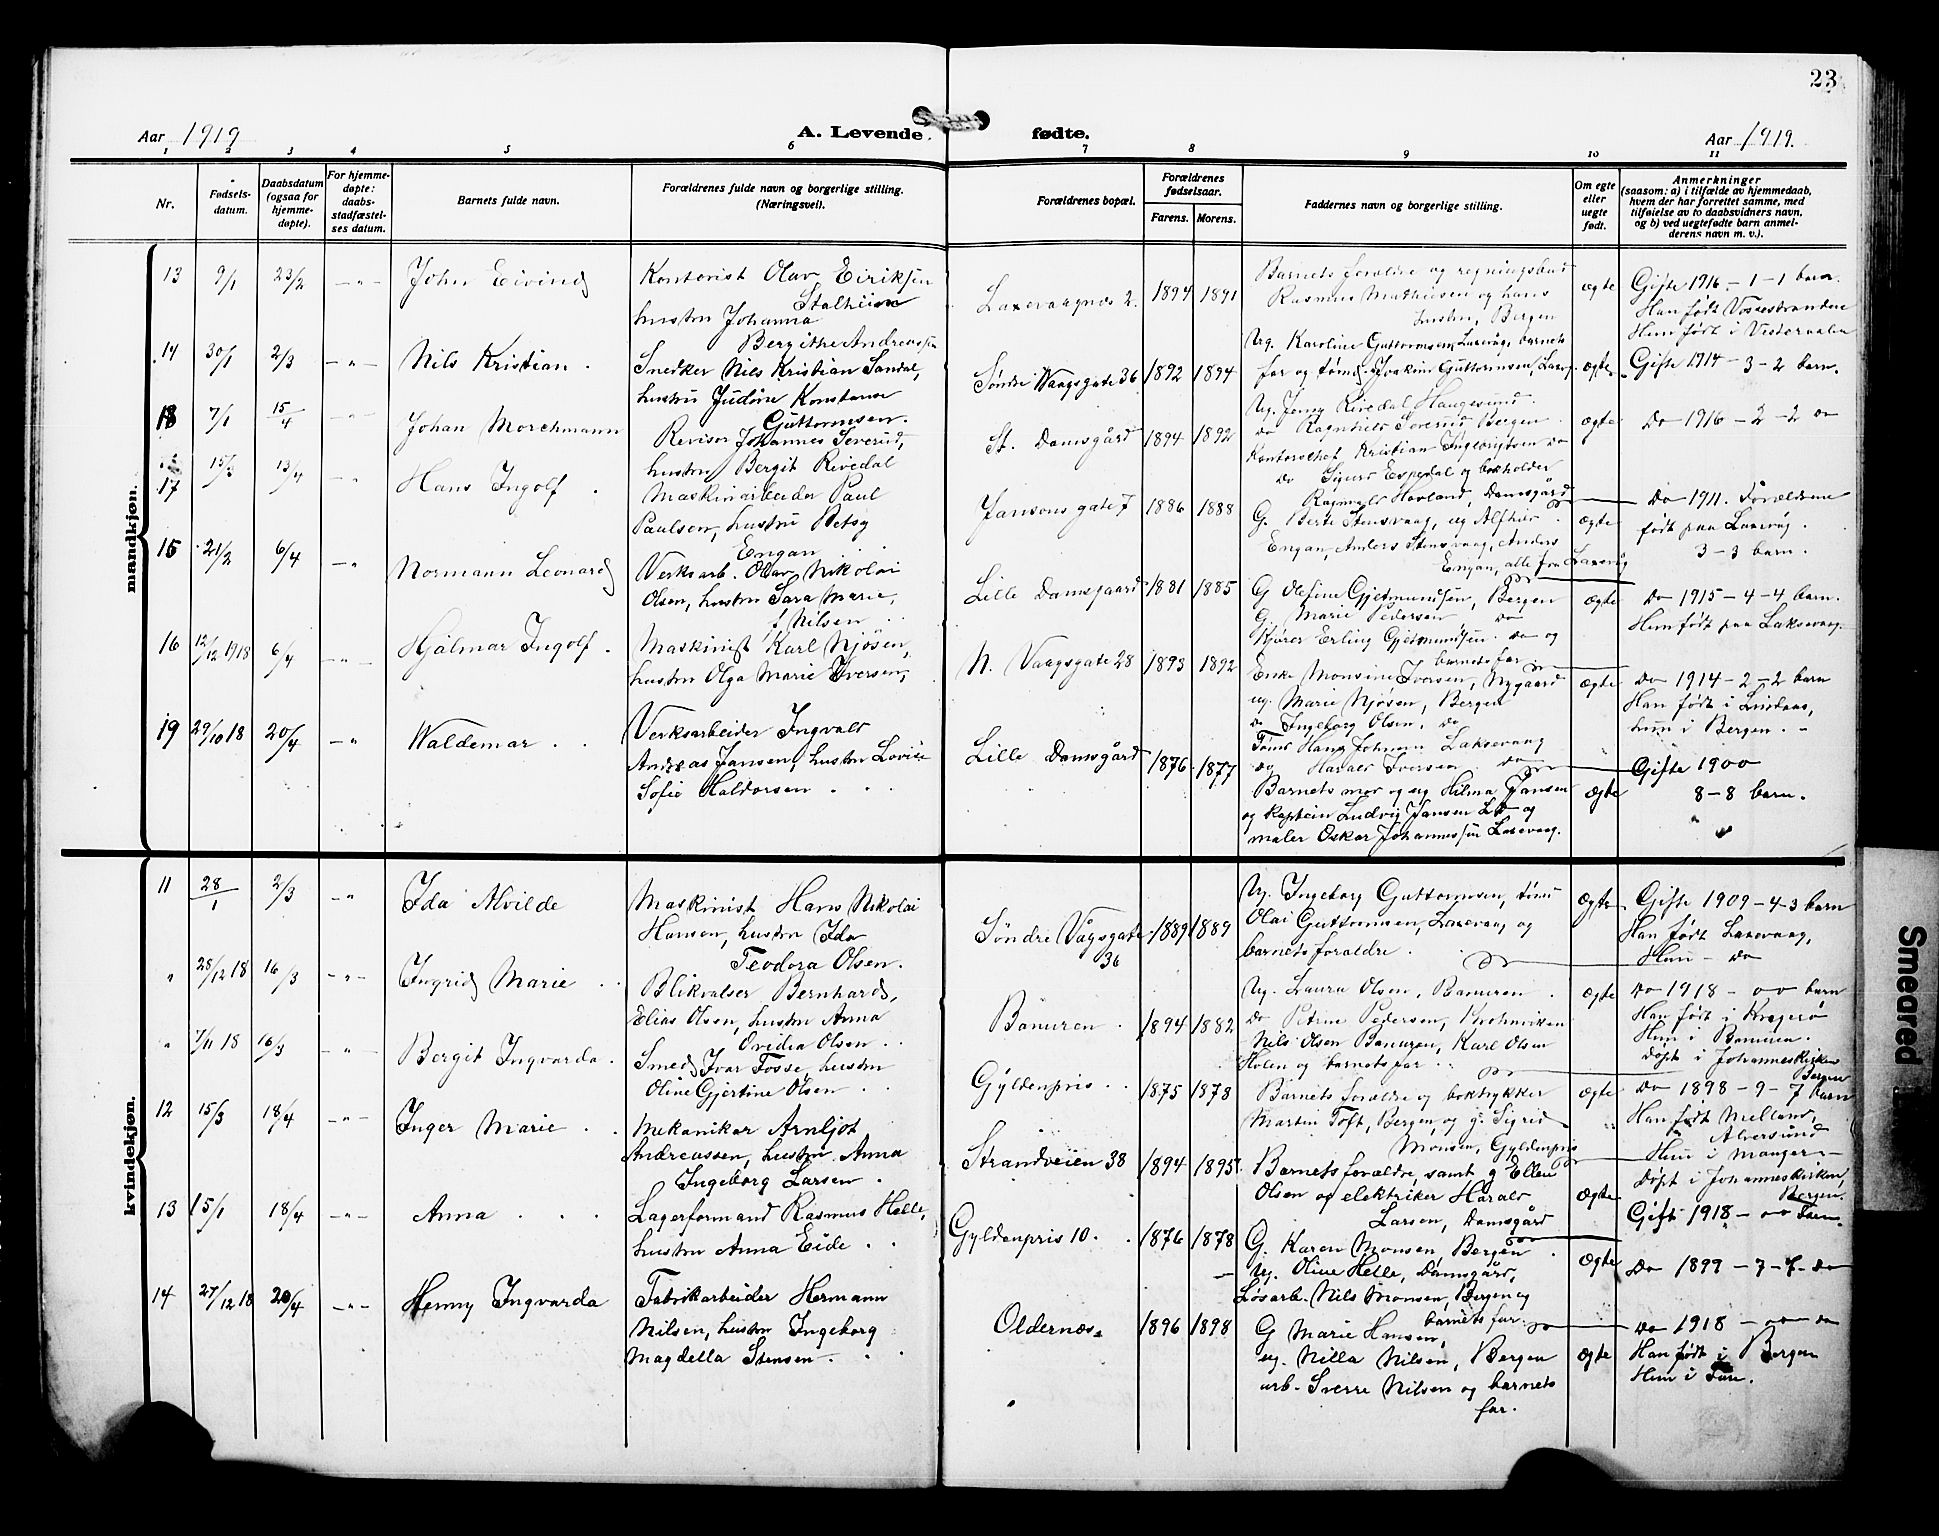 23
Aar 1919
A. Levende fødte.
Aar 1919.
1 2 3 4 5 6 7 8 9 10 11
Nr.
Fødsels-
datum.
Daabsdatum
(ogsaa for
hjemme-
døpte).
For hjemme-
døpte:
daabs-
stadfæstel-
ses datum.
Barnets fulde navn.
Forældrenes fulde navn og borgerlige stilling.
(Næringsvei).
Forældrenes bopæl.
Forældrenes
fødselsaar.
Farens. Morens.
Faddernes navn og borgerlige stilling.
Om egte
eller
uegte
født.
Anmerkninger
(saasom: a) i tilfælde av hjemmedaab,
hvem der har forrettet samme, med
tilføielse av to daabsvidners navn,
og b) ved uegtefødte barn anmel-
derens navn m. v.).
mandkjøn.
13 9/1 23/2 -"- John Eivind
Kontorist Olav Eiriksen
Stalheim
hustru Johanna
Bergithe Andreassen
Laxevaagnes 2. 1894 1891
Barnets forældre og regningsbud
Rasmus Mathisen og hans
hustru, Bergen
ægte
Gifte 1916 - 1-1 barn
Han født Vossestranden
Hun født i Vesteraalen
14 30/1 2/3 -"- Nils Kristian.
Snedker Nils Kristian Sandal,
hustru Judine Konstanse
Guttormsen.
Søndre Vaagsgate 36 1892 1894
Ug. Karoline Guttormsen, Laxevåg, barnets
far og tømd. Joakim Guttormsen, Laxevåg.
ægte
Gifte 1914 - 3-2 barn.
18 7/1 15/4 -"- Johan Morchmann
Revisor Johannes Severud,
hustru Bergit Rivedal
St. Damsgård 1894 1892
Ug. Jenny Rivedal Haugesund
do Ragnhild Severud Bergen
Kontorchef Kristian Ingebrigtsen do
do Sigurd Espedal og bokholder
Ragnvald Hovland, Damsgård
ægte
Do 1916 - 2-2 do
17 15/3 13/4 -"- Hans Ingolf.
Maskinarbeider Paul
Paulsen, hustru Betsy
Engan
Jansons gate 7 1886 1888
G. Berte Stensvaag, ug Alfhild
Engan, Anders Stensvaag, Anders
Engan, alle fra Laxevåg
ægte
Do 1911. Forældrene
født paa Laxevåg.
3-3 barn.
15 21/2 6/4 -"- Normann Leonard
Verksarb. Olav Nikolai
Olsen, hustru Sara Marie,
f. Nilsen
Lille Damsgaard 1881 1885
G Olefine Gjetmundsen, Bergen
G. Marie Pedersen do
Kjører Erling Gjetmundsen do og
barnets far
ægte
Do 1915 - 4-4 barn.
Hun født paa Laksevaag.
16 12/12 1918 6/4 -"- Hjalmar Ingolf.
Maskinist Karl Njøsen,
hustru Olga Marie Iversen,
N. Vaagsgate 28 1893 1892
Enke Monsine Iversen, Nygaard
ug. Marie Njøsen, Bergen
do Ingeborg Olsen, do
Tømd Hans Johnsen Laksevaag
og Harald Iversen do
ægte
Do 1914 - 2-2 barn
Han født i Lindaas,
hun i Bergen. -
19 29/10 18 20/4 -"- Waldemar
Verksarbeider Ingvald
Andreas Jansen, hustru Lovise
Sofie Haldorsen
Lille Damsgård 1876 1877
Barnets mor og ug Hilma Jansen
og kaptein Ludvig Jansen Lv og
maler Oskar Johannessen Laxevaag.
ægte
Gifte 1900
8-8 barn.
kvindekjøn.
11 28/1 2/3 -"- Ida Alvilde
Maskinist Hans Nikolai
Hansen, hustru Ida
Teodora Olsen.
Søndre Vågsgate 36 1889 1889
Ug. Ingeborg Guttormsen, tømd
Olai Guttormsen, Laxevaag, og
barnets forældre.
ægte
Gifte 1909 - 4-3 barn
Han født Laxevaag,
Hun - do
" 28/12 18 16/3 -"- Ingrid Marie
Blikvalser Bernhard
Elias Olsen, hustru Anna
Ovidia Olsen
Bønuren. 1894 1882
Ug. Laura Olsen, Bønuren
do Petrine Pedersen,
Nils Olsen Bønuren, Karl Olsen
Holen og barnets far
ægte
Do 1918 - oo barn
Han født i Kragerø
Hun i Bønuren.
døpt i Johanneskirken
Bergen
" 7/11 18 16/3 -"- Bergit Ingvarda.
Smed Ivar Fosse, hustru
Oline Gjertine Olsen
Gyldenpris 1875 1878
Barnets forældre og boktrykker
Martin Toft, Bergen, og g. Sigrid
Monsen, Gyldenpris
ægte
Do 1898 - 9-7 barn
Han født Melland,
Alversund
Hun i Manger -
Døpt i Johanneskirken,
Bergen.
12 15/3 18/4 -"- Inger Marie
Mekaniker Arnljot
Andreassen, hustru Anna
Ingeborg Larsen.
Strandveien 38 1894 1895
Barnets forældre, samt g Ellen
Olsen og elektriker Harald
Larsen, Damsgård
ægte
Gift 1918 - oo barn.
13 15/1 18/4 -"- Anna
Lagerformand Rasmus Helle,
hustru Anna Eide
Gyldenpris 10. 1876 1878
G. Karen Monsen, Bergen
Ug. Oline Helle, Damsgård,
Løsarb. Nils Monsen, Bergen og
barnets far.
ægte
Do 1899 - 7-7 do
14 27/12 18 20/4 -"- Henny Ingvarda
Fabrikarbeider Hermann
Nilsen, hustru Ingeborg
Magdella Stensen.
Oldernæs. 1896 1898
G Marie Hansen,
ug. Nilla Nilsen, Bergen
arb. Sverre Nilsen og barnets
far.
ægte
Do 1918 - oo do
Han født i Bergen
Hun i
Smeared